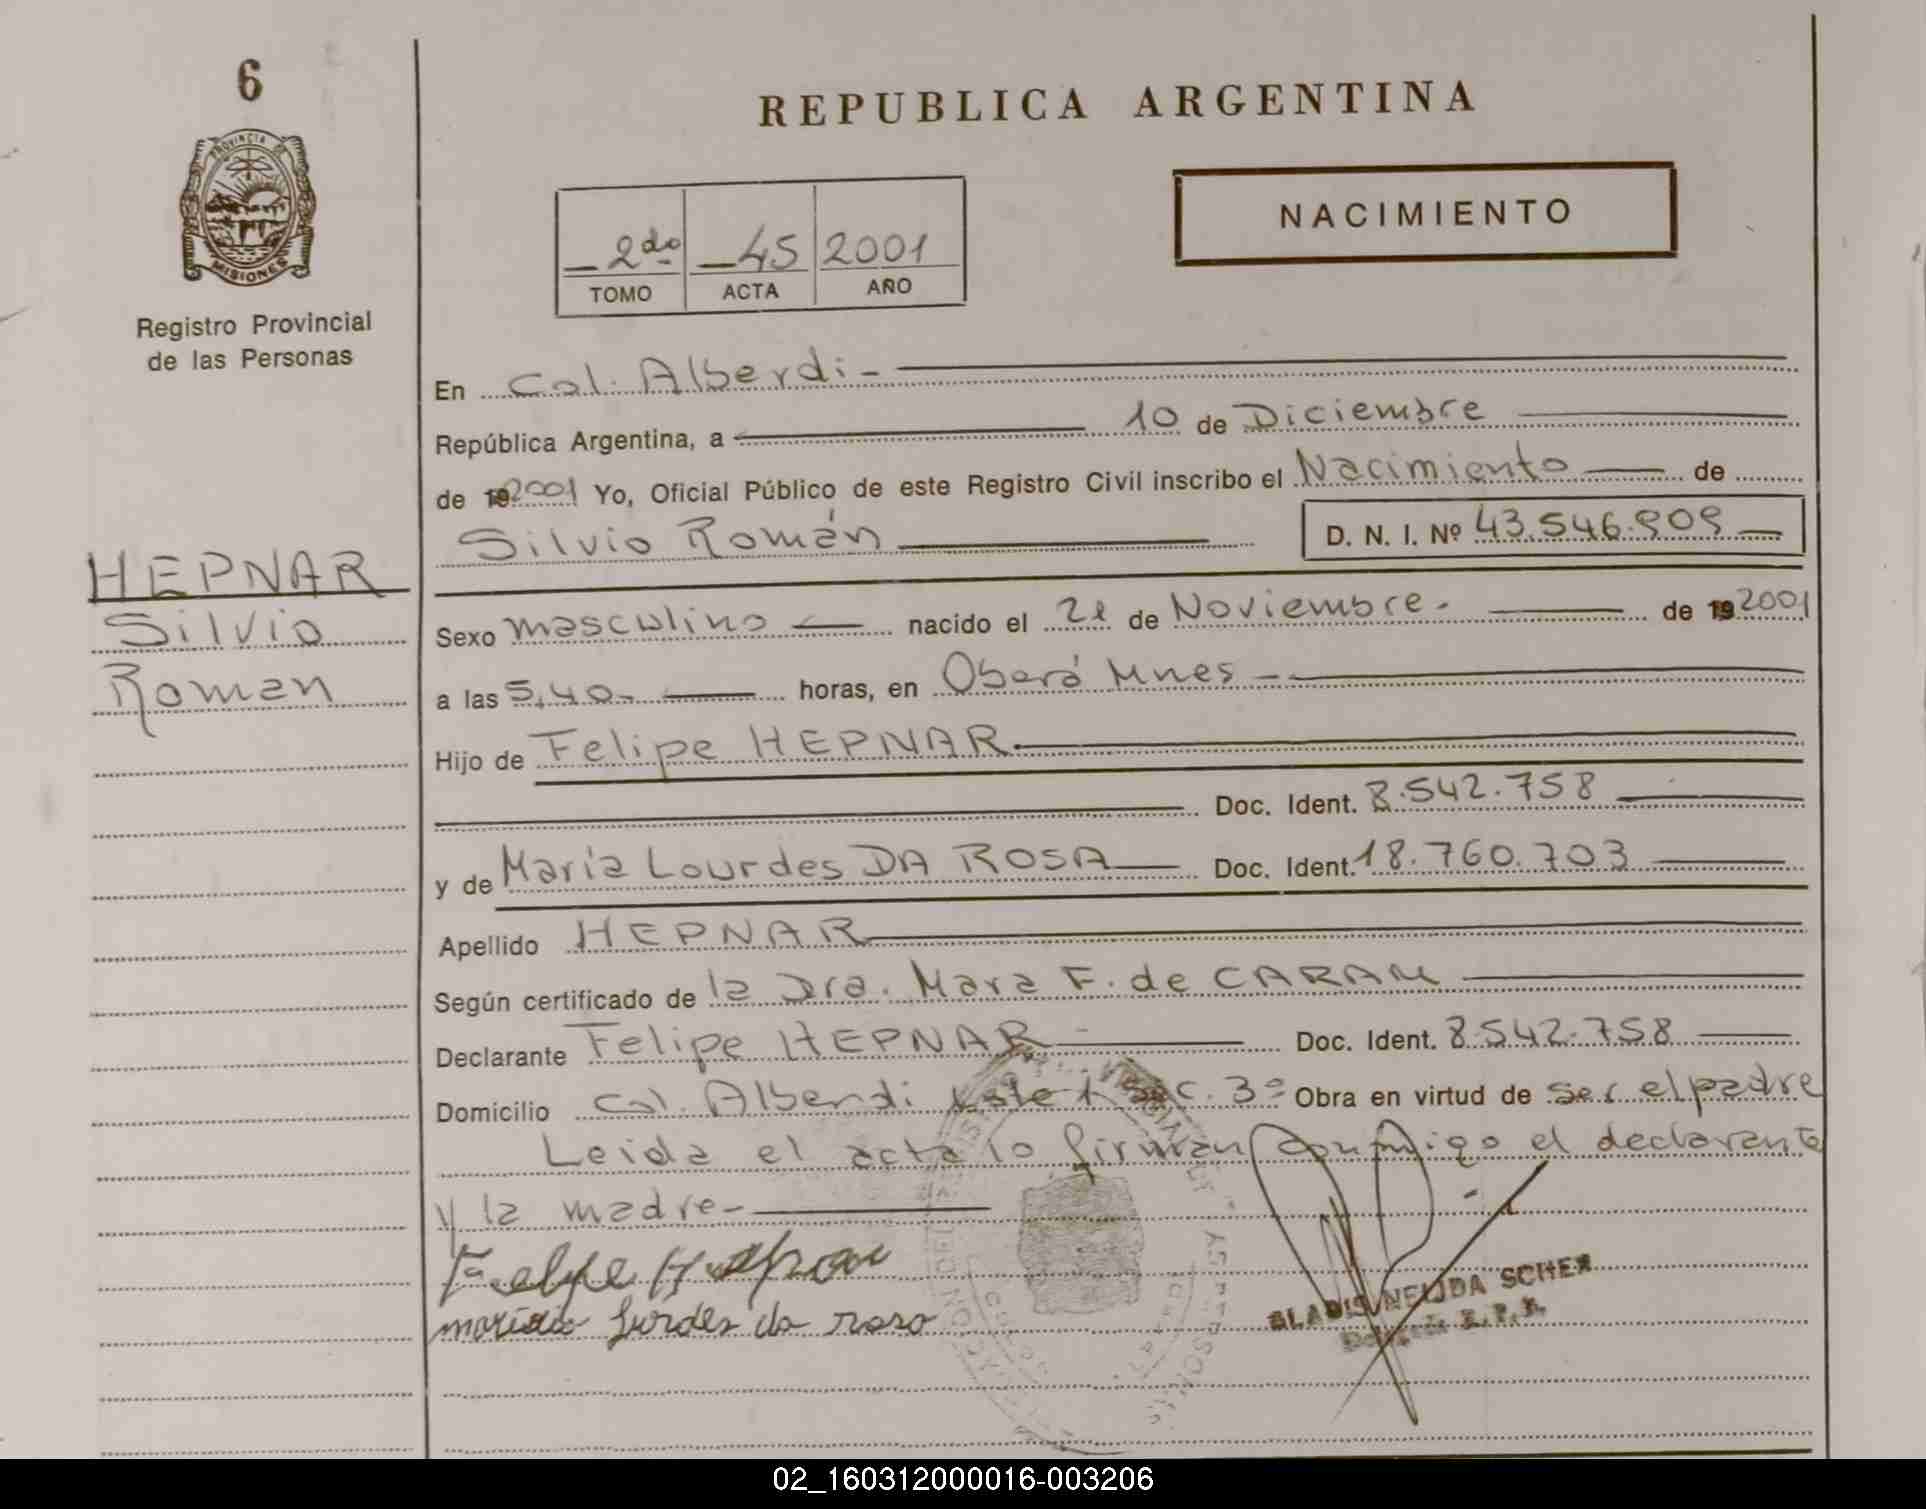 6
PROVINCIA DE
MISIONES
Registro Provincial
de las Personas
REPUBLICA ARGENTINA
NACIMIENTO
2do 45 2001
TOMO ACTA AÑO
En Col. Alberdi -
República Argentina, a 10 de Diciembre
de 192001 Yo, Oficial Público de este Registro Civil inscribo el Nacimiento de
Silvio Román D. N. I. Nº 43.546.909
HEPNAR
Silvio
Roman
Sexo masculino nacido el 21 de Noviembre. de 192001
a las 5,40 horas, en Oberá Mnes -
Hijo de Felipe HEPNAR
Doc. Ident. 8.542.758
y de María Lourdes DA ROSA Doc. Ident. 18.760.703
Apellido HEPNAR
Según certificado de la Dra. Mara F. de CARAM
Declarante Felipe HEPNAR - Doc. Ident. 8.542.758
Domicilio Col. Alberdi sec. 3º Obra en virtud de ser el padre
Leida el acta lo firman conmigo el declarante
y la madre -
Felipe Hepnar
maria Lurdes da rosa
GLADIS NELIDA SCHER
02_160312000016-003206